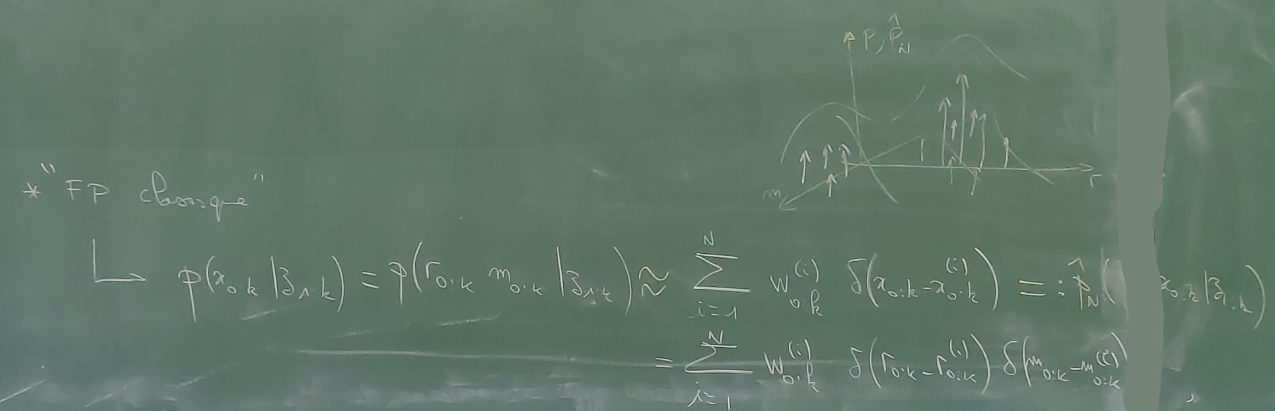 P, P̂_N
r
m
* "FP classique"
p(x_{0:k} | z_{1:k}) = p(r_{0:k} m_{0:k} | z_{1:k}) ≈ ∑_{i=1}^{N} w_{0:k}^{(i)} δ(x_{0:k} - x_{0:k}^{(i)}) =: p̂_N( x_{0:k} | z_{1:k})
= ∑_{i=1}^{N} w_{0:k}^{(i)} δ(r_{0:k} - r_{0:k}^{(i)}) δ(m_{0:k} - m_{0:k}^{(i)})